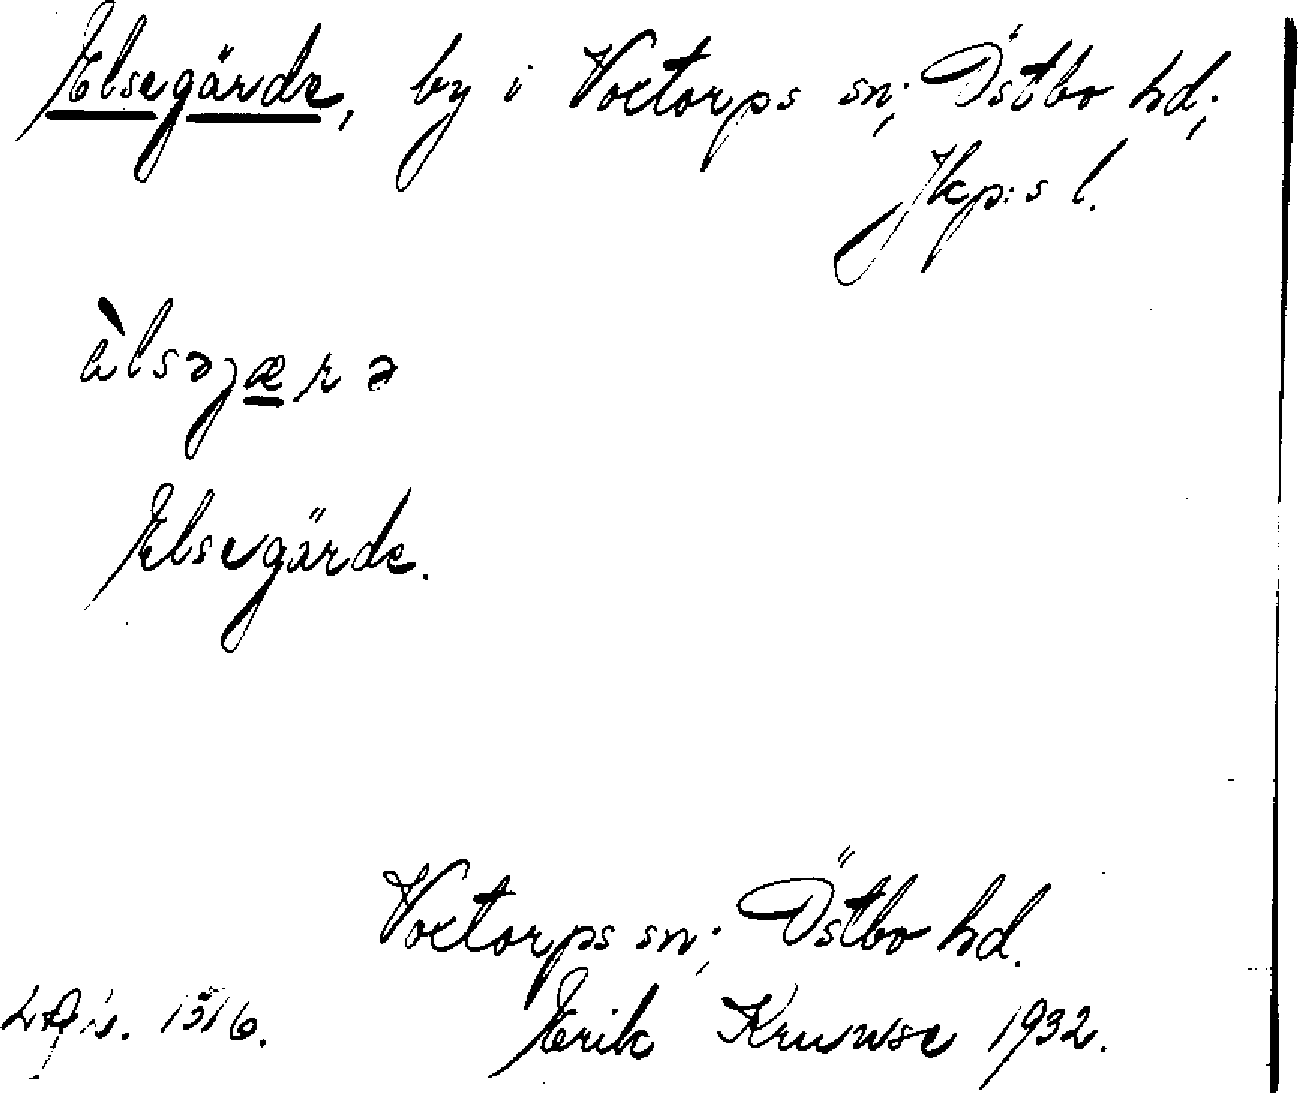 Elsegärde, by i Voxtorps sn; Östbo hd;
Jkp:s l.
àlsəjærə
Elsegärde.
Voxtorps sn; Östbo hd.
Erik Kruuse 1932.